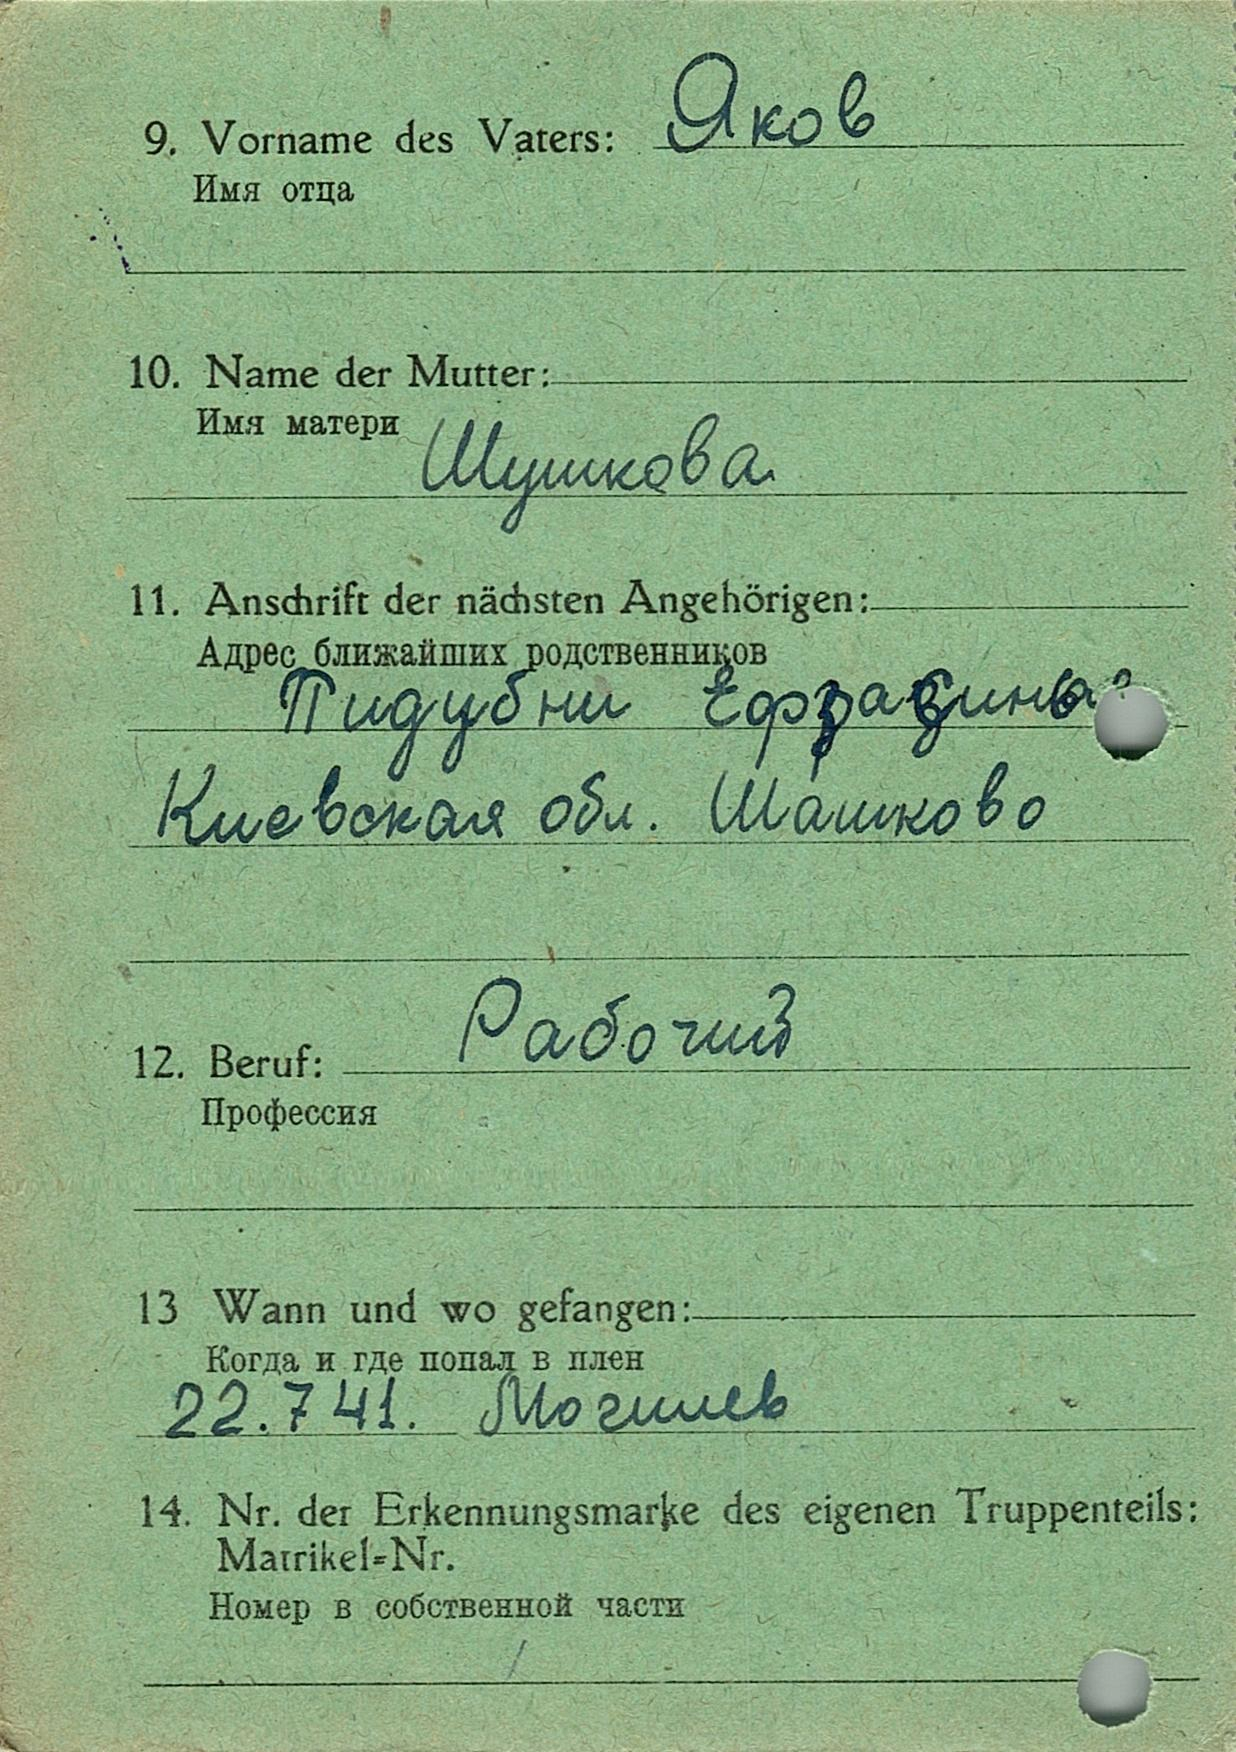 9. Vorname des Vaters: Яков
Имя отца
10. Name der Mutter:
Имя матери
Шушкова
11. Anschrift der nächsten Angehörigen:
Адрес ближайших родственников
Пидубни
Киевская обл. Шашково
12. Beruf: Рабочий
Профессия
13 Wann und wo gefangen:
Когда и где попал в плен
22.7 41. Могилев
14. Nr. der Erkennungsmarke des eigenen Truppenteils:
Matrikel=Nr.
Номер в собственной части